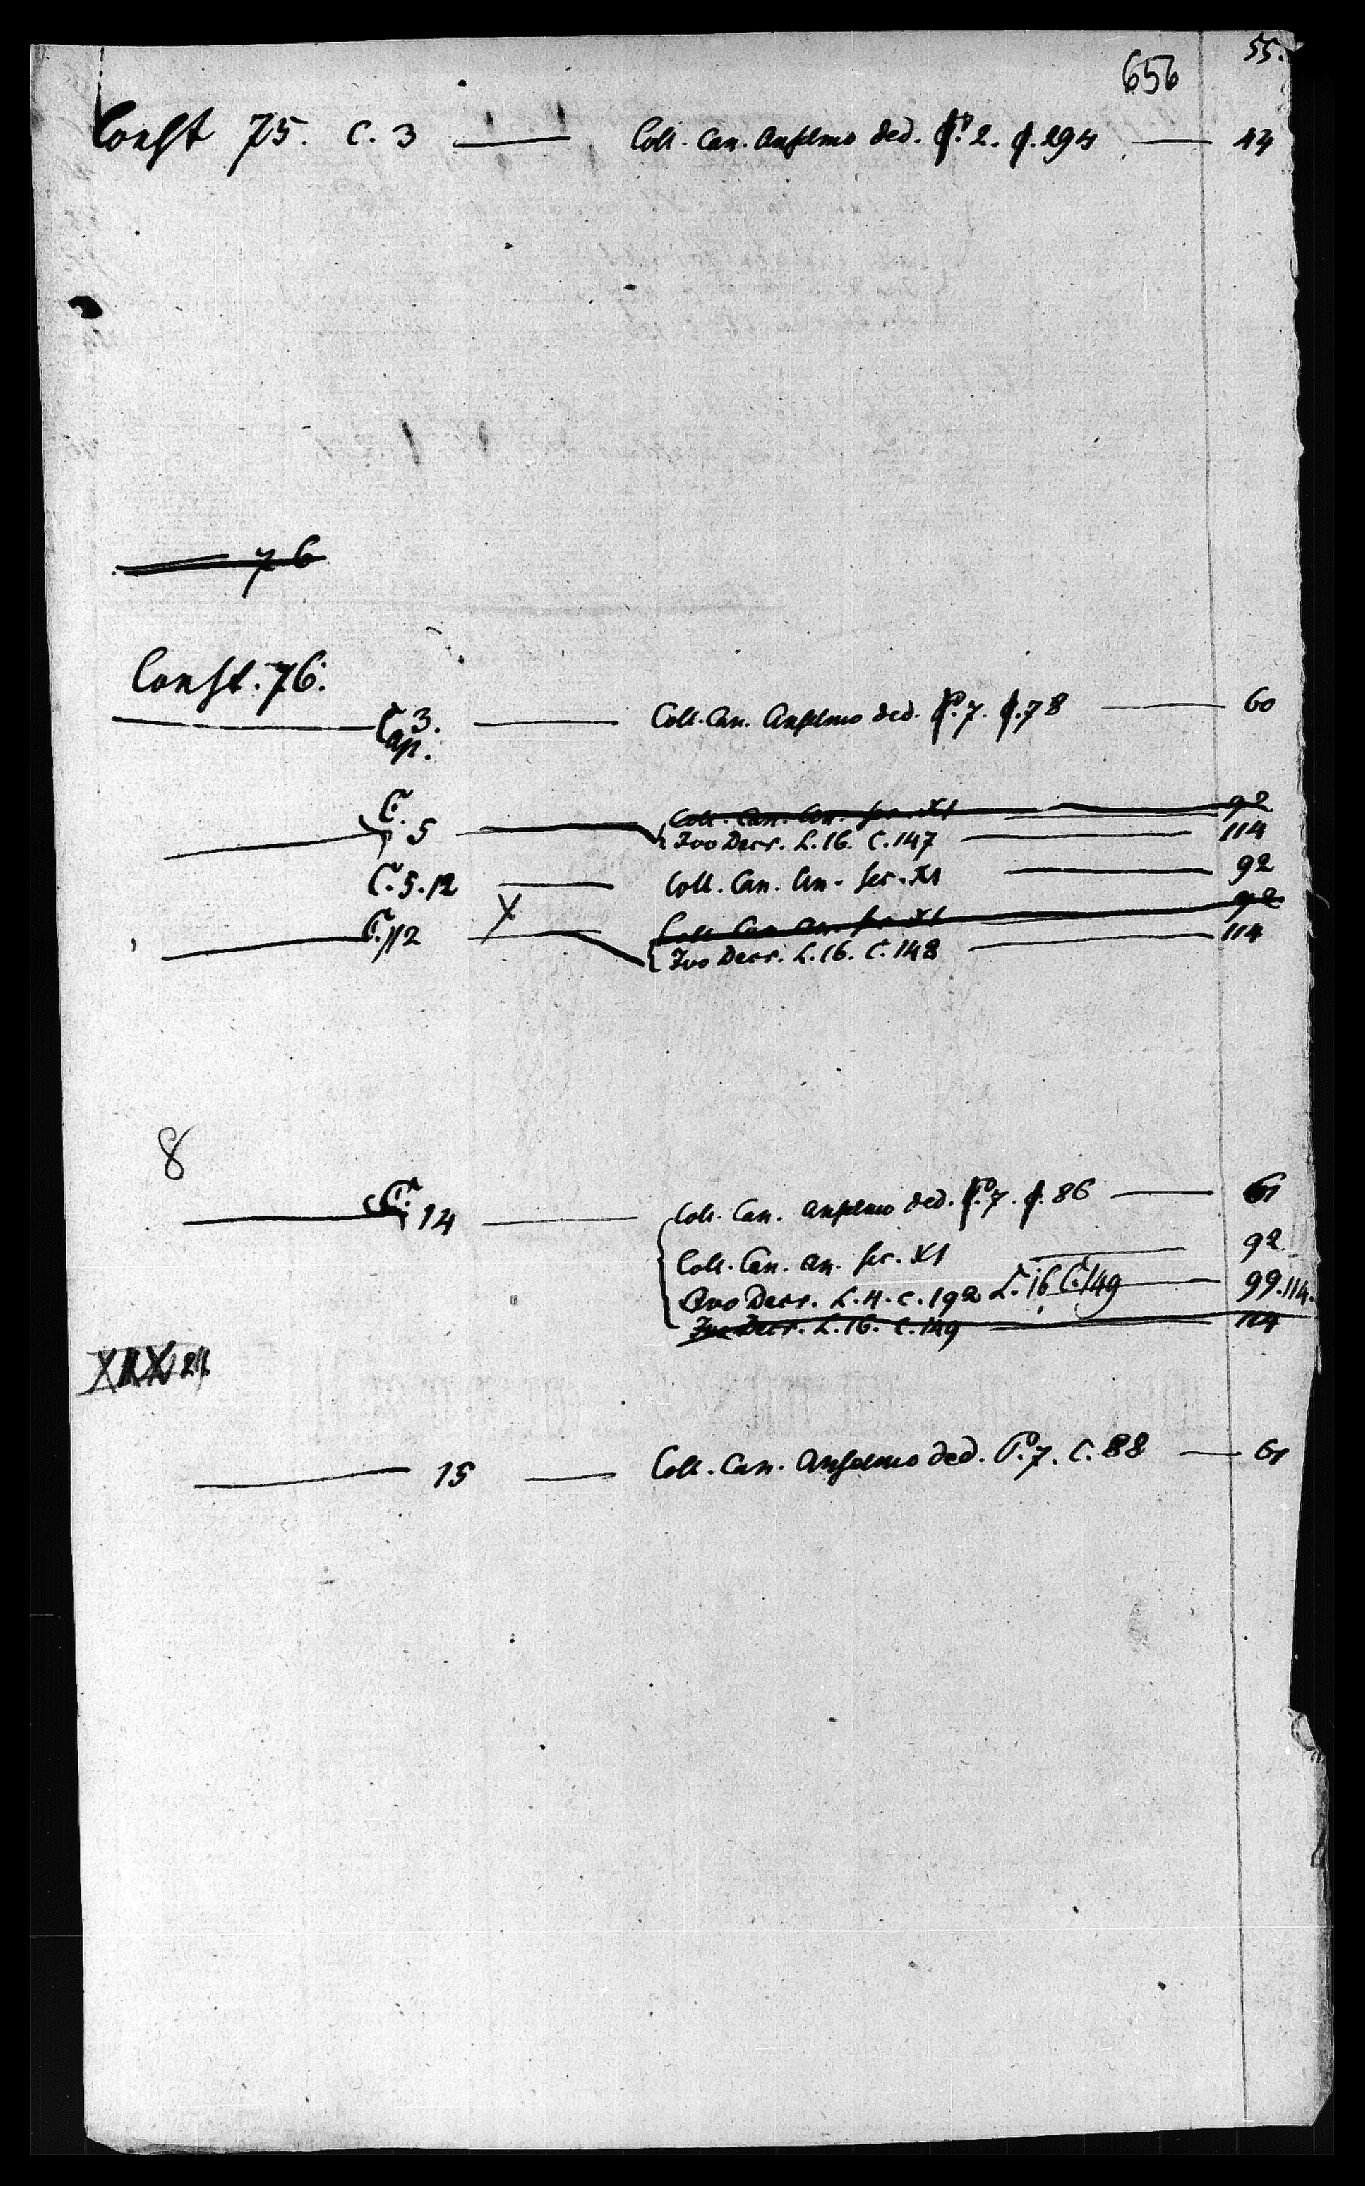 55.
656
Const 75. C. 3 — Coll. Can. Anselmo ded. P. 2. c. 294 — 44
— 76
Const. 76.
— C. 3. — Coll. Can. Anselmo ded. P. 7. c. 78 — 60
ap.
C. Coll. Can. An. sec. XI — 92
— 5 — Ivo Decr. L. 16. C. 147 — 114
C. 5. 12 — Coll. Can. An. sec. XI — 92
X Coll. Can. An. sec. XI — 92
— C. 12 — Ivo Decr. L. 16. C. 148 — 114
8
— C. 14 — Coll. Can. Anselmo ded. P. 7. c. 86 — 61
Coll. Can. An. sec. XI — 92
Ivo Decr. L. 4. C. 192 L. 16 C. 149 — 99. 114.
Ivo Decr. L. 16. C. 149 — 114
— 15 — Coll. Can. Anselmo ded. P. 7. C. 88 — 61